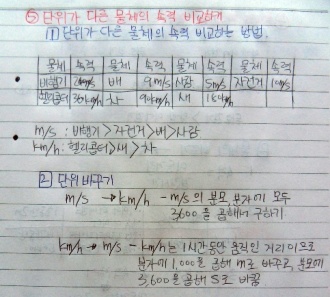 ⑤ 단위가 다른 물체의 속력 비교하기
1 단위가 다른 물체의 속력 비교하는 방법.
물체 속력 물체 속력 물체 속력 물체 속력
비행기 배 9m/s 사람 5m/s 자전거 10m/s
헬리콥터 360km/h 차 90km/h 새
m/s : 비행기>자전거>배>사람
km/h : 헬리콥터>새>차
2 단위 바꾸기
m/s → km/h - m/s의 분모, 분자에 모두
3,600을 곱해서 구하기
km/h → m/s - km/h는 1시간동안 움직인 거리이므로
분자에 1,000을 곱해 m로 바꾸고 분모에
3,600을 곱해 s로 바꿈